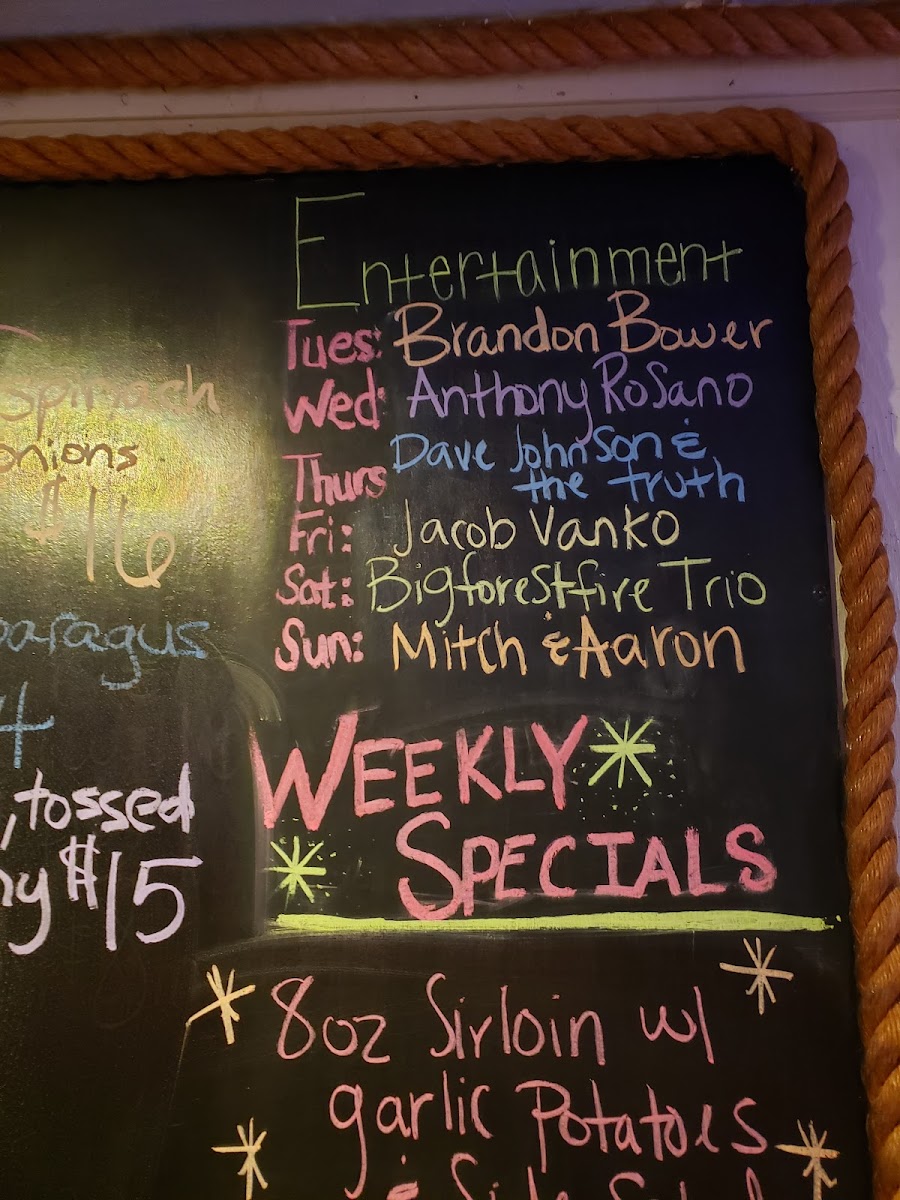 Entertainment
Tues: Brandon Bower
Wed: Anthony RoSano
Thurs Dave Johnson &
the truth
Fri: Jacob Vanko
Sat: Bigforestfire Trio
Sun: Mitch & Aaron
WEEKLY
SPECIALS
8oz Sirloin w/
garlic Potatoes
& Side Salad
Spinach
onions
$16
paragus
4
, tossed
ny $15